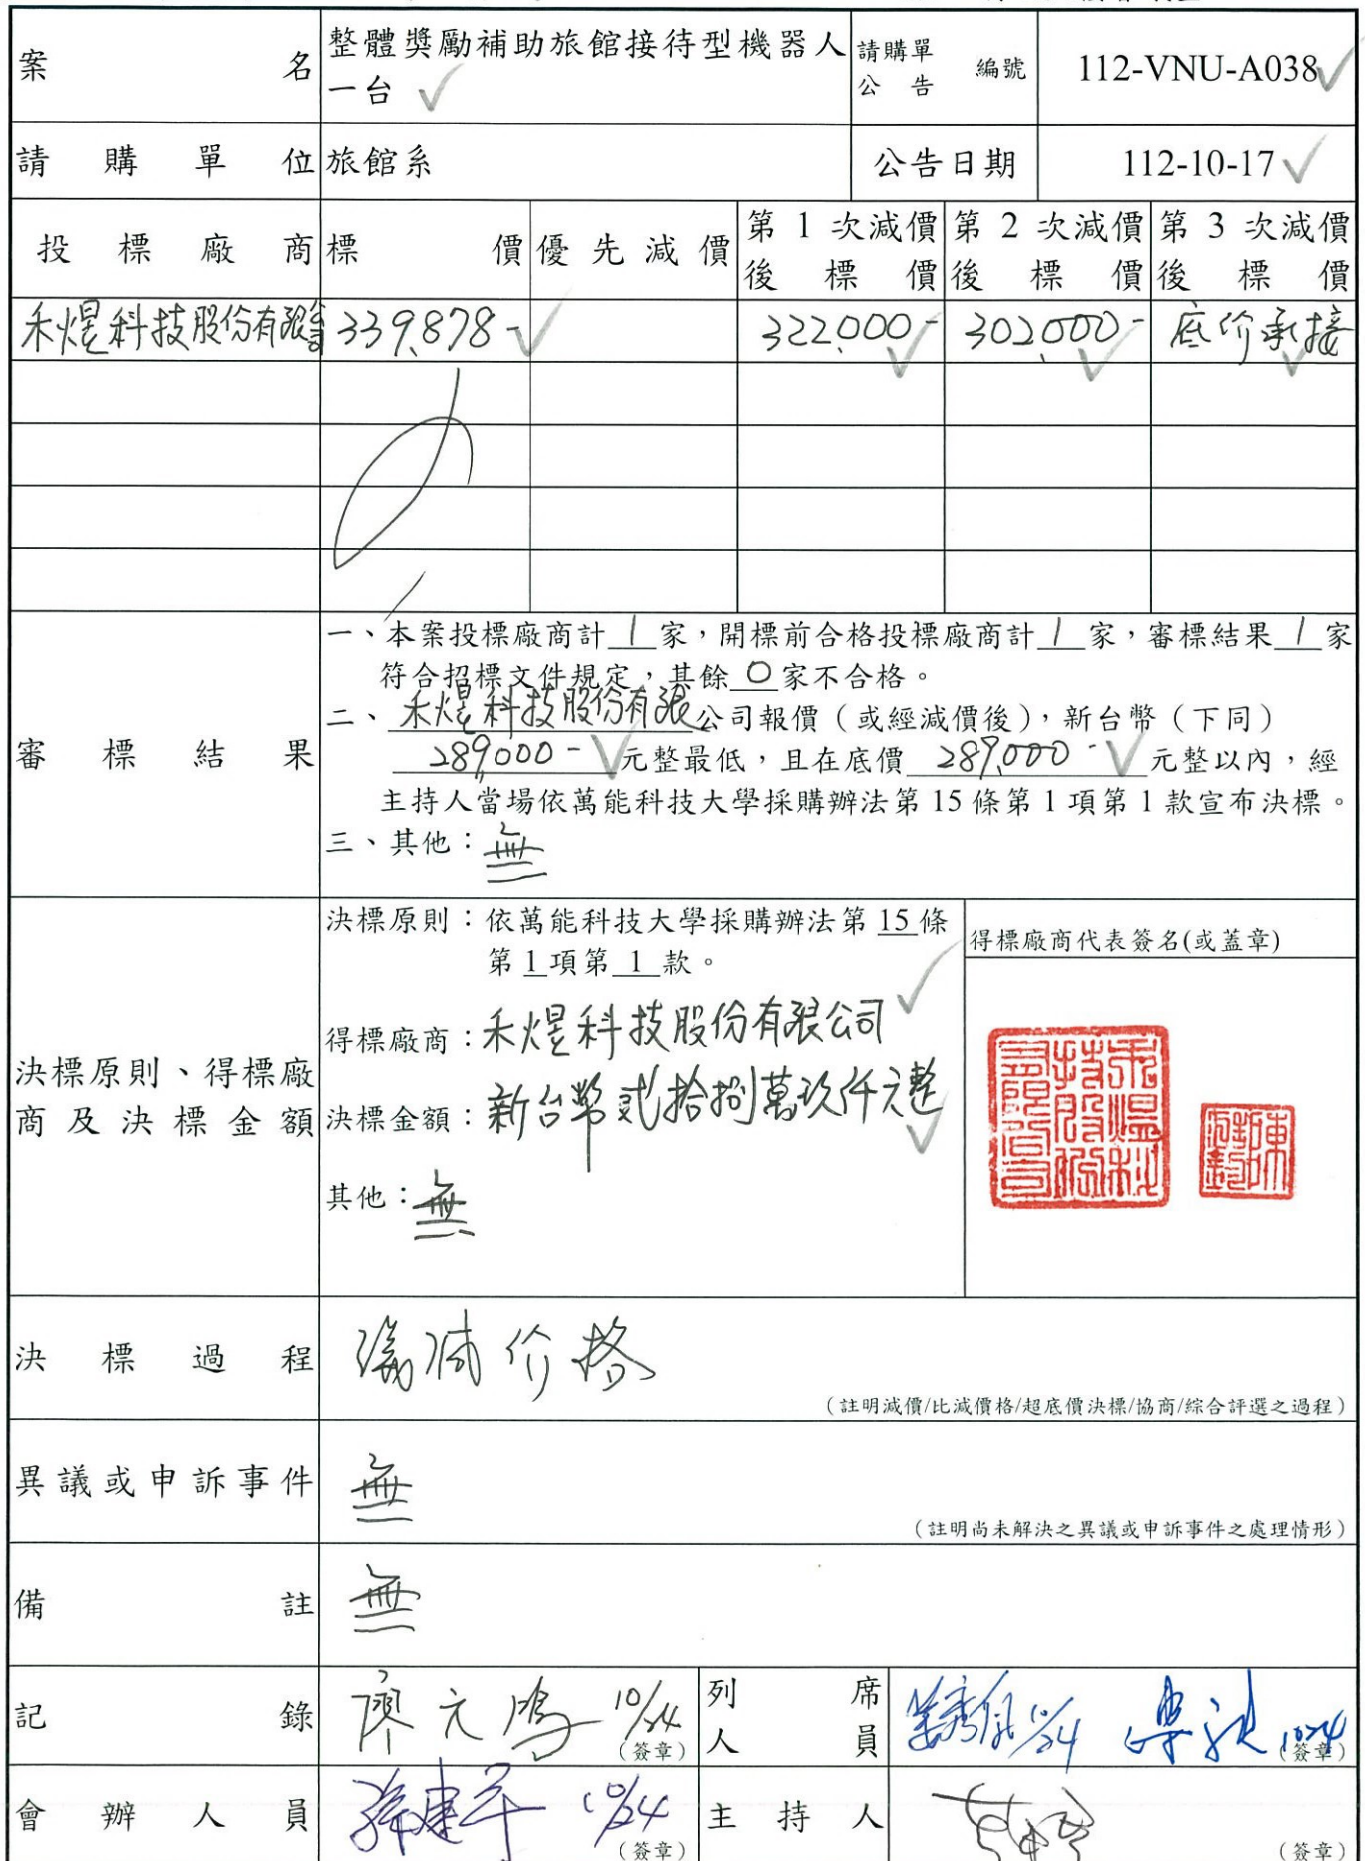 案名 整體獎勵補助旅館接待型機器人
一台
請購單
公告 編號 112-VNU-A038
請購單位 旅館系 公告日期 112-10-17
投標廠商 標價 優先減價 第1次減價後標價 第2次減價後標價 第3次減價後標價
禾煜科技股份有限公司 339,878- 322,000- 302,000- 底价承接
審標結果
一、本案投標廠商計 1 家，開標前合格投標廠商計 1 家，審標結果 1 家
符合招標文件規定，其餘 0 家不合格。
二、禾煜科技股份有限公司報價（或經減價後），新台幣（下同）
289,000- 元整最低，且在底價 289,000- 元整以內，經
主持人當場依萬能科技大學採購辦法第 15 條第 1 項第 1 款宣布決標。
三、其他：無
決標原則、得標廠
商及決標金額
決標原則：依萬能科技大學採購辦法第 15 條
第 1 項第 1 款。
得標廠商：禾煜科技股份有限公司
決標金額：新台幣貳拾捌萬玖仟元整
其他：無
得標廠商代表簽名(或蓋章)
決標過程 議減价格
（註明減價/比減價格/超底價決標/協商/綜合評選之過程）
異議或申訴事件 無
（註明尚未解決之異議或申訴事件之處理情形）
備註 無
記錄 廖元鳴 10/24 （簽章）
列席人員 10/24 10/24 （簽章）
會辦人員 10/24 （簽章）
主持人 （簽章）